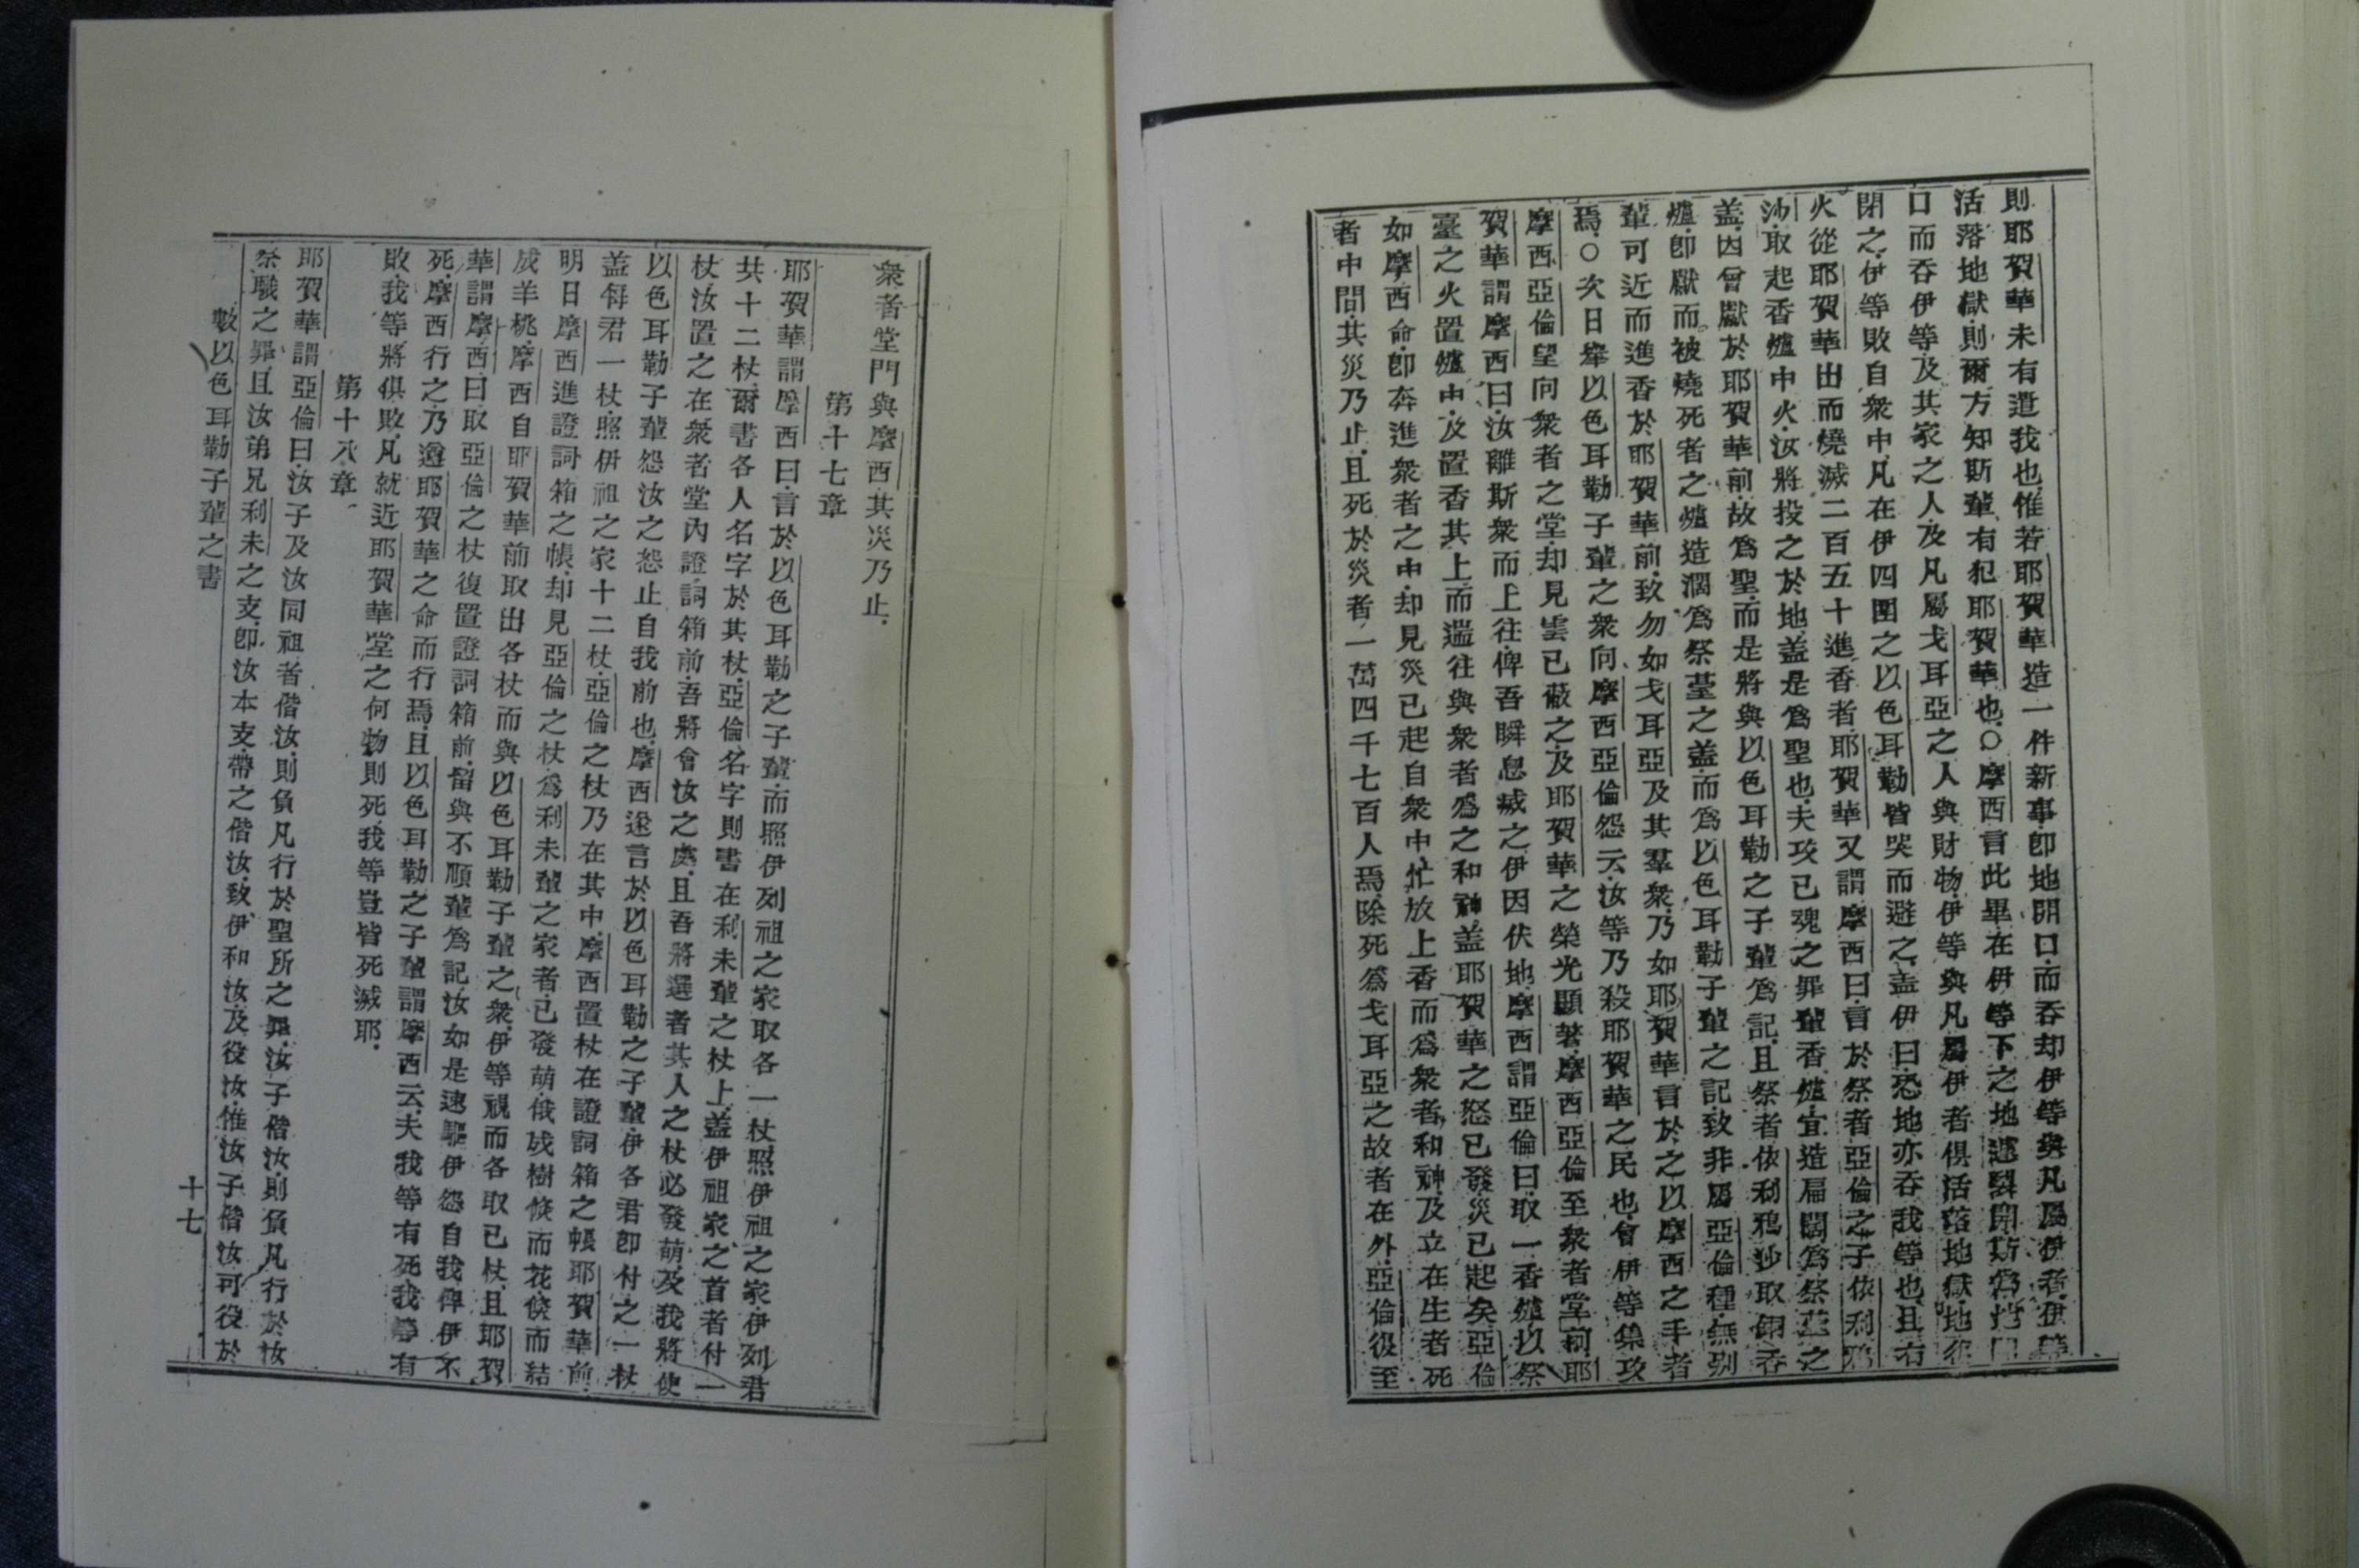 則耶賀華未有遣我也惟若耶賀華造一件新事卽地開口而吞却伊等與凡屬伊者伊等
活落地獄則爾方知斯輩有犯耶賀華也○摩西言此畢在伊等下之地遂裂開斯爲
口而吞伊等及其家之人及凡屬戈耳亞之人與財物伊等與凡屬伊者俱活落地獄地
閉之伊等敗自衆中凡在伊四圍之以色耳勒皆哭而避之蓋伊曰恐地亦吞我等也且有
火從耶賀華出而燒滅二百五十進香者耶賀華又謂摩西曰言於祭者亞倫之子依利
沙取起香爐中火汝將投之於地蓋是爲聖也夫攻己魂之罪輩香爐宜造扁闊爲祭臺之
盖因曾獻於耶賀華前故爲聖而是將與以色耳勒之子輩爲記且祭者依利鴉沙取銅香
爐卽獻而被燒死者之爐造濶爲祭臺之盖而爲以色耳勒子輩之記致非屬亞倫種無別
輩可近而進香於耶賀華前致勿如戈耳亞及其羣衆乃如耶賀華言於之以摩西之手者
焉○次日舉以色耳勒子輩之衆向摩西亞倫怨云汝等乃殺耶賀華之民也會伊等集攻
摩西亞倫望向衆者之堂却見雲已蔽之及耶賀華之榮光顯著摩西亞倫至衆者堂前耶
賀華謂摩西曰汝離斯衆而上往俾吾瞬息滅之伊因伏地摩西謂亞倫曰取一香爐以祭
臺之火置爐中及置香其上而遄往與衆者爲之和神盖耶賀華之怒已發災已起矣亞倫
如摩西命卽奔進衆者之中却見災已起自衆中忙放上香而爲衆者和神及立在生者死
者中間其災乃止且死於災者一萬四千七百人焉除死爲戈耳亞之故者在外亞倫後至
衆者堂門與摩西其災乃止
第十七章
耶賀華謂摩西曰言於以色耳勒之子輩而照伊列祖之家取各一杖照伊祖之家伊列君
共十二杖爾書各人名字於其杖亞倫名字則書在利未輩之杖上蓋伊祖家之首者付一
杖汝置之在衆者堂內證詞箱前吾將會汝之處且吾將選者其人之杖必發萌及我將使
以色耳勒子輩怨汝之怨止自我前也摩西遂言於以色耳勒之子輩伊各君卽付之一杖
盖每君一杖照伊祖之家十二杖亞倫之杖乃在其中摩西置杖在證詞箱之帳耶賀華前
明日摩西進證詞箱之帳却見亞倫之杖爲利未輩之家者已發萌俄成樹倐而花倐而結
成羊桃摩西自耶賀華前取出各杖而與以色耳勒子輩之衆伊等視而各取己杖且耶賀
華謂摩西曰取亞倫之杖復置證詞箱前留與不順輩爲記汝如是速驅伊怨自我俾伊不
死摩西行之乃遵耶賀華之命而行焉且以色耳勒之子輩謂摩西云夫我等有死我等有
敗我等將俱敗凡就近耶賀華堂之何物則死我等豈皆死滅耶
第十八章
耶賀華謂亞倫曰汝子及汝同祖者偕汝則負凡行於聖所之罪汝子偕汝則負凡行於汝
祭職之罪且汝弟兄利未之支卽汝本支帶之偕汝致伊和汝及役汝惟汝子偕汝可役於
數以色耳勒子輩之書
十七